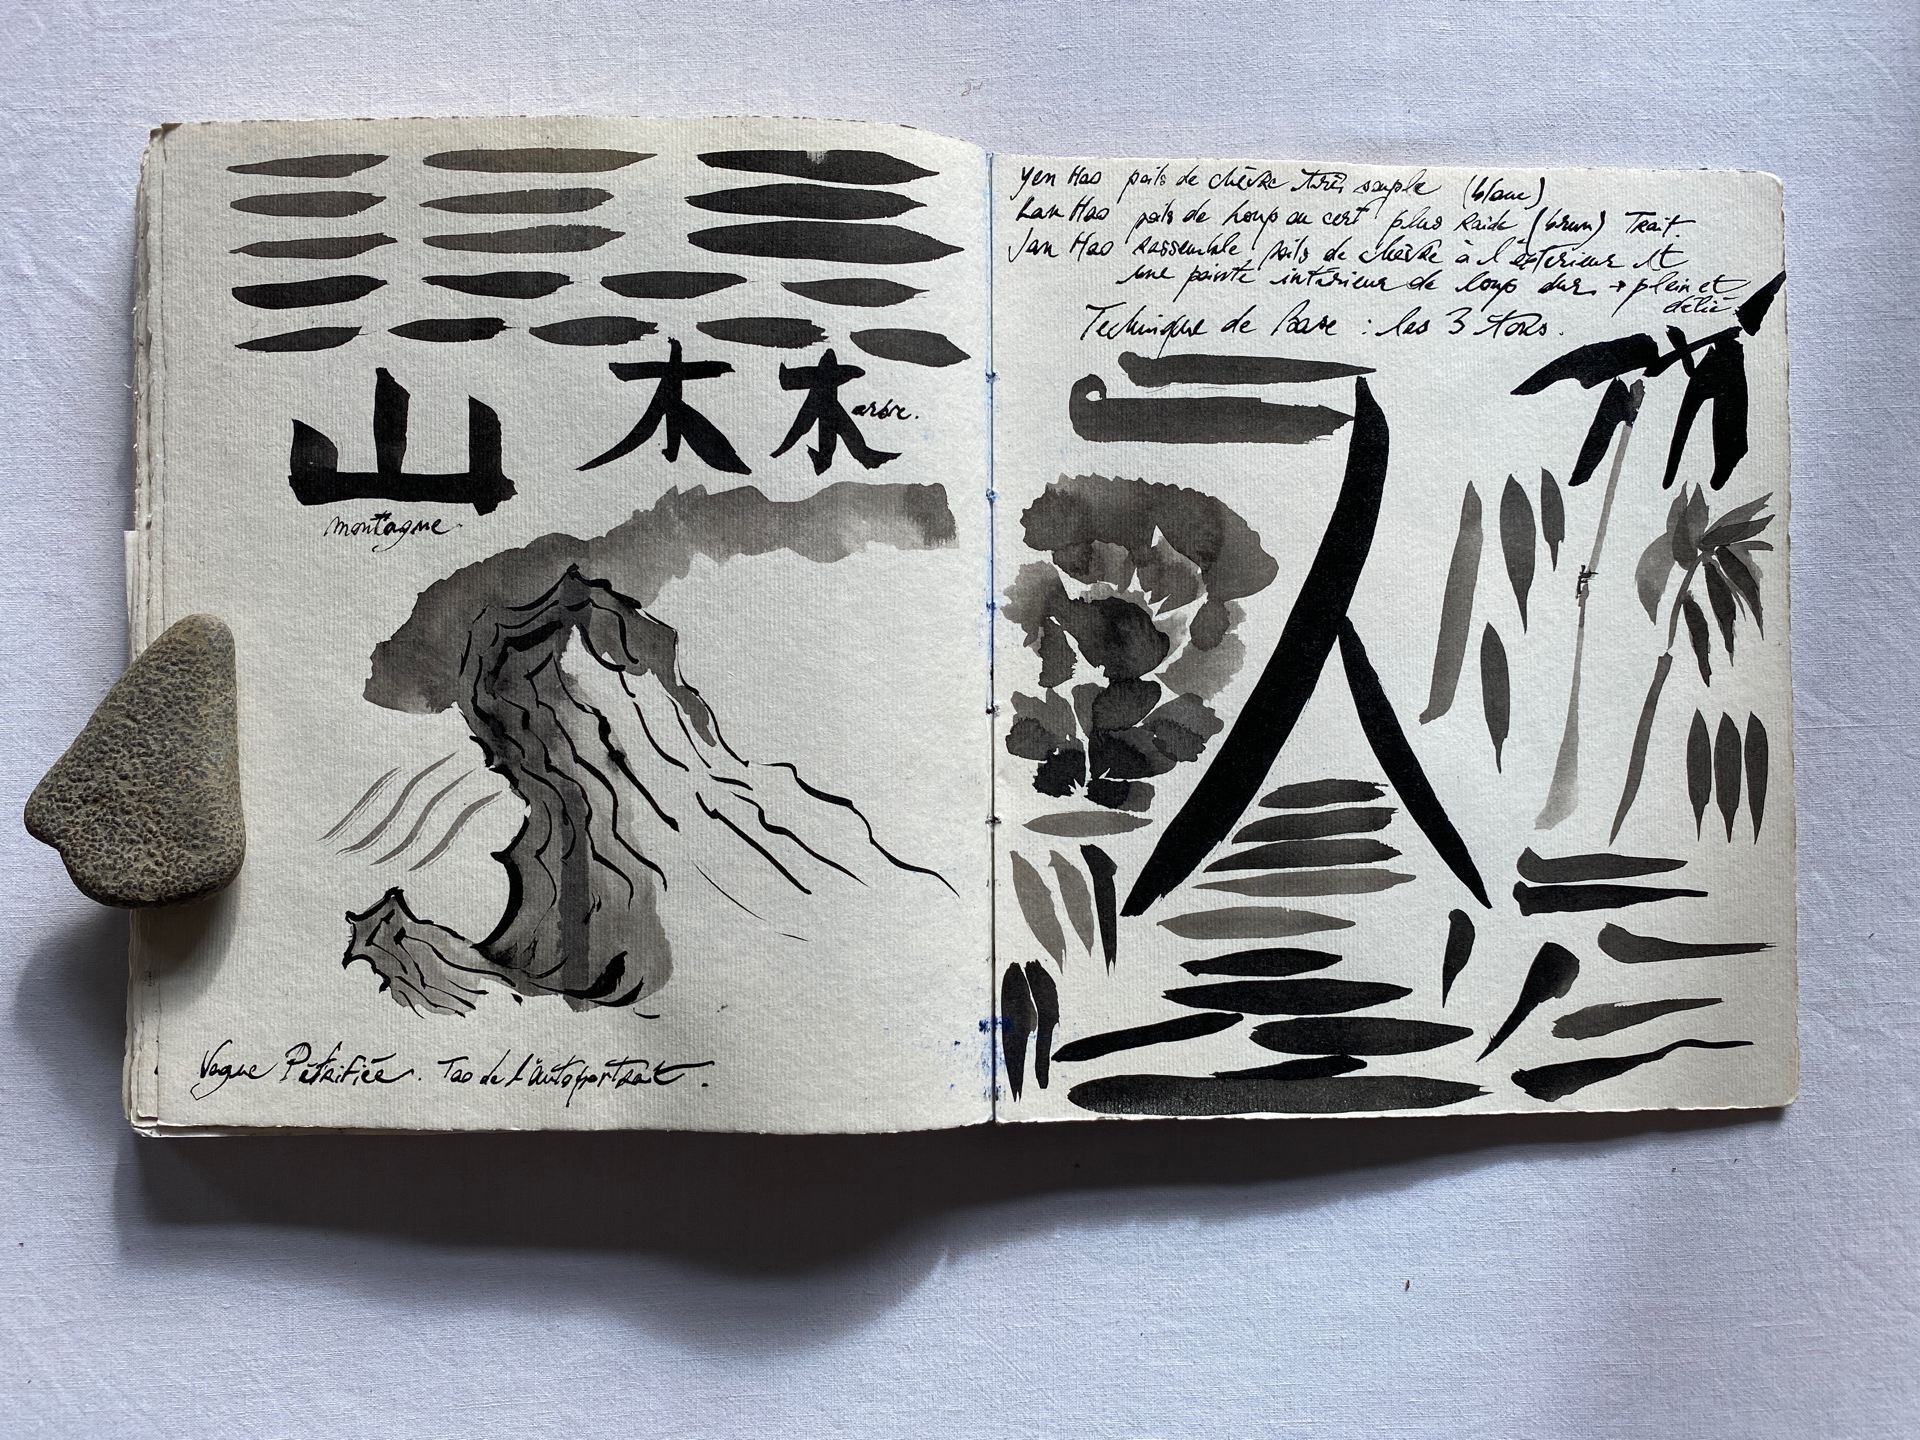 山 木 木 arbre.
montagne
Vague Pétrifiée. Tao de l'autoportrait.
Yen Hao poils de chèvre très souple (blanc)
Lan Hao poils de loup ou cerf plus raide (brun) Trait.
Jan Hao rassemble poils de chèvre à l'extérieur et
une pointe intérieur de loup dur → plein et
délié.
Technique de Base : les 3 tons.
人